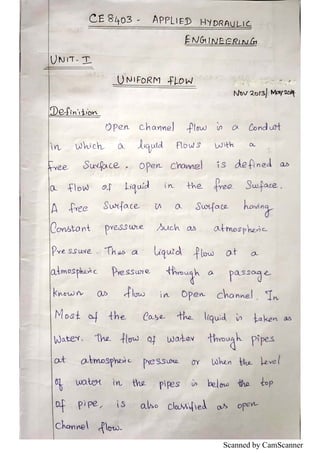 CE8403 - APPLIED HYDRAULIC
ENGINEERING
UNIT - I
UNIFORM FLOW
Nov 2013/ May 2014
Definition
Open channel flow is a Conduit
in which a liquid flows with a
free Surface. Open channel is defined as
a flow of Liquid in the free Surface.
A free Surface is a Surface having
Constant pressure such as atmospheric
Pressure. Thus a liquid flow at a
atmospheric Pressure through a passage
known as flow in Open channel. In
Most of the Case the liquid is taken as
Water. The flow of water through pipes
at atmospheric pressure or when the Level
of water in the pipes is below the top
of pipe, is also classified as open
Channel flow.
Scanned by CamScanner